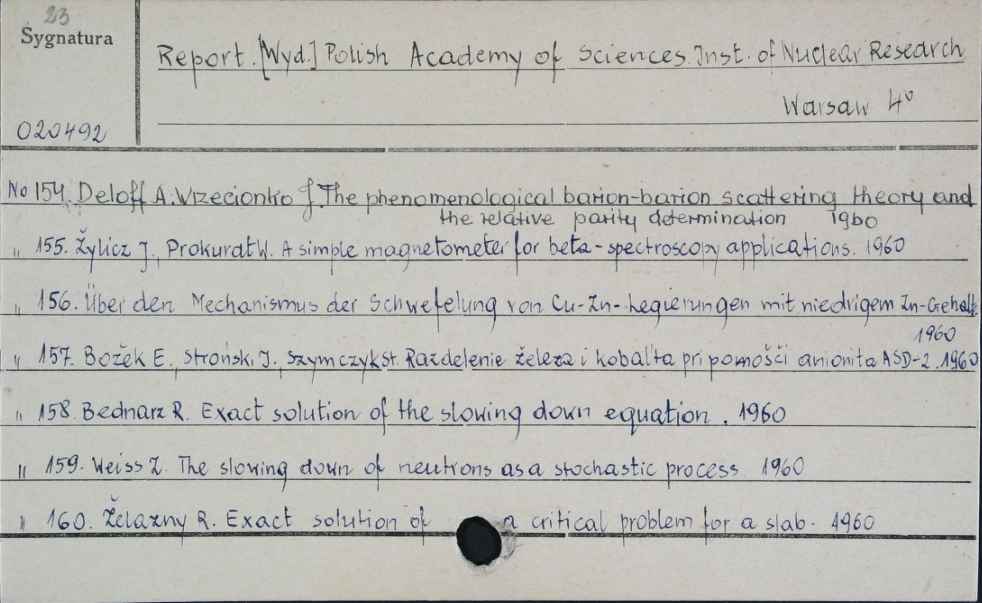 23
Sygnatura
Report. [Wyd.] Polish Academy of Sciences. Inst. of Nuclear Research
Warsaw 4°
020492
No 154. Deloff A. Wrzecionko J. The phenomenological barion-barion scattering theory and
the relative parity determination 1960
" 155. Żylicz J., Prokurat W. A simple magnetometer for beta-spectroscopy applications. 1960
" 156. Über den Mechanismus der Schwefelung von Cu-Zn-Legierungen mit niedrigem Zn-Gehalt.
1960
" 157. Božek E., Stroński J., Szymczyk St. Razdelenie železa i kobal'ta pri pomošči anionita ASD-2. 1960
" 158. Bednarz R. Exact solution of the slowing down equation. 1960
" 159. Weiss Z. The slowing down of neutrons as a stochastic process. 1960
" 160. Żelazny R. Exact solution of a critical problem for a slab. 1960